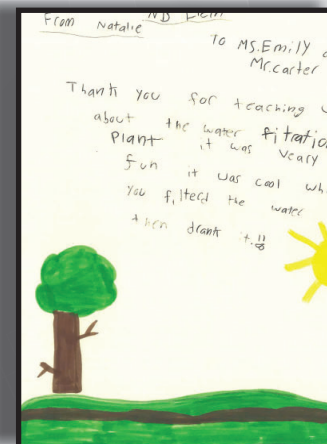 From Natalie
To MS.Emily
Mr.carter
Thank you for teaching
about the water fitration
Plant it was veary
fun it was cool wh
You filterd the water
then drank it.